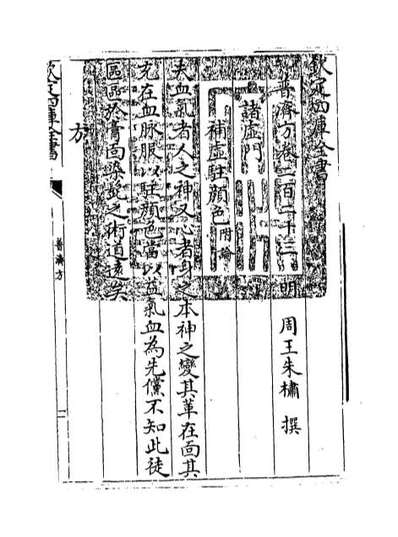 欽定四庫全書
普濟方卷二百二十三　明　周王朱橚　撰
諸虛門
補虛駐顏色附論
夫血氣者人之神又心者身之本神之變其華在面其
充在血脉服以駐顏色當以益氣血為先儻不知此徒
區區於膏面染髭之術道遠矣
方
欽定四庫全書
普濟方